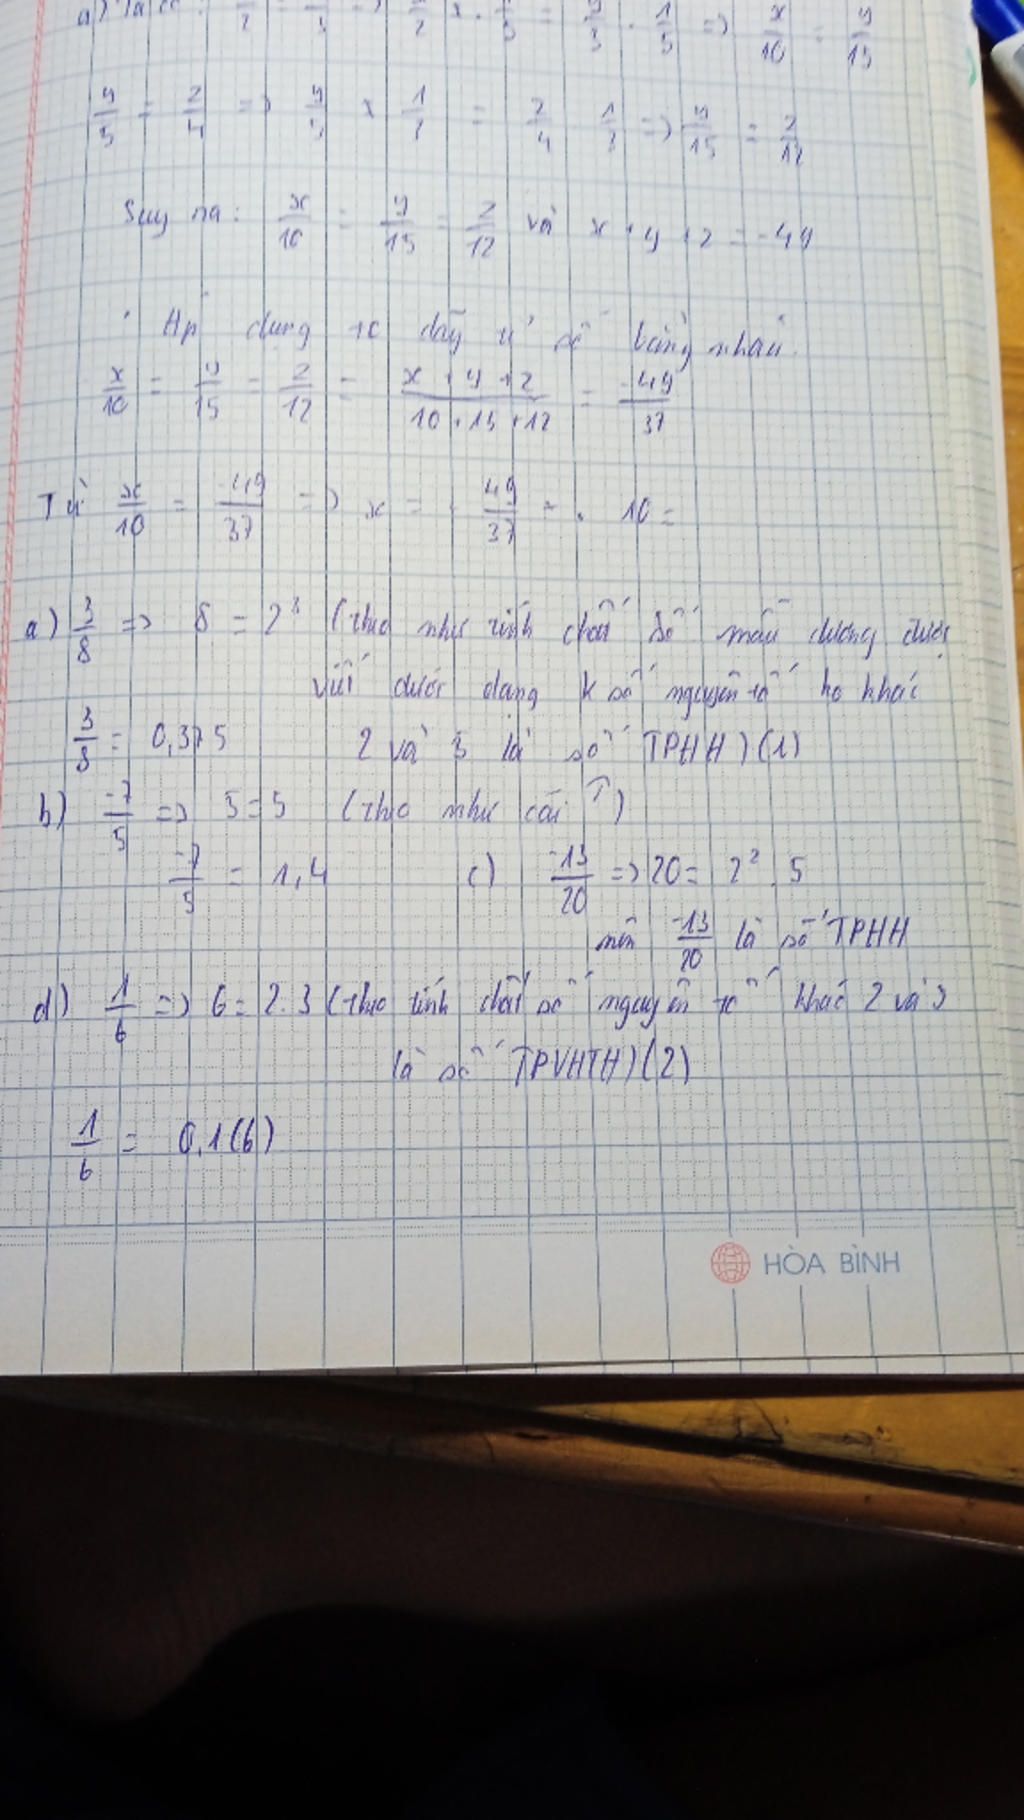 a) Ta có: x/2 = y/3 => x/2 × . 1/5 = y/3 . 1/5 => x/10 = y/15
y/5 = z/4 => y/5 × 1/3 = z/4 1/3 => y/15 = z/12
Suy ra: x/10 = y/15 = z/12 và x + y + z = -49
Áp dụng tc dãy tỉ số bằng nhau.
x/10 = y/15 = z/12 = x + y + z / 10 + 15 + 12 = -49/37
Từ x/10 = -49/37 => x = - 49/37 . 10 =
a) 3/8 => 8 = 2³ (theo như tính chất số mẫu dương được
viết dưới dạng k số nguyên tố ko khác
3/8 = 0,375 2 và 5 là số TPHH) (1)
b) -7/5 => 5 = 5 (theo như cái 1)
-7/5 = 1,4 c) -13/20 => 20 = 2² . 5
nên -13/20 là số TPHH
d) 1/6 => 6 = 2.3 (theo tính chất số nguyên tố khác 2 và 5
là số TPVHTH) (2)
1/6 = 0,1(6)
HÒA BÌNH